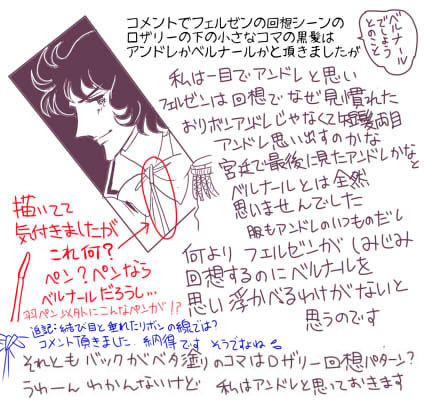 コメントでフェルゼンの回想シーンの
ロザリーの下の小さなコマの黒髪は
アンドレかベルナールかと頂きましたが
ベルナール
でしょう
とのこと
私は一目でアンドレと思い
フェルゼンは回想でなぜ見慣れた
おリボンアンドレじゃなくて短髪両目
アンドレ思い出すのかな
宮廷で最後に見たアンドレかなと
ベルナールとは全然
思いませんでした
服もアンドレのいつものだし
何よりフェルゼンがしみじみ
回想するのにベルナールを
思い浮かべるわけがないと
思うのです
描いてて
気付きましたが
これ何?
ペン?ペンなら
ベルナールだろうし…
羽ペン以外にこんなペンが!?
追記・結び目と垂れたリボンの線では?
コメント頂きました 納得です そうですね。
それともバックがベタ塗りのコマはロザリー回想パターン?
うわーんわかんないけど 私はアンドレと思っておきます